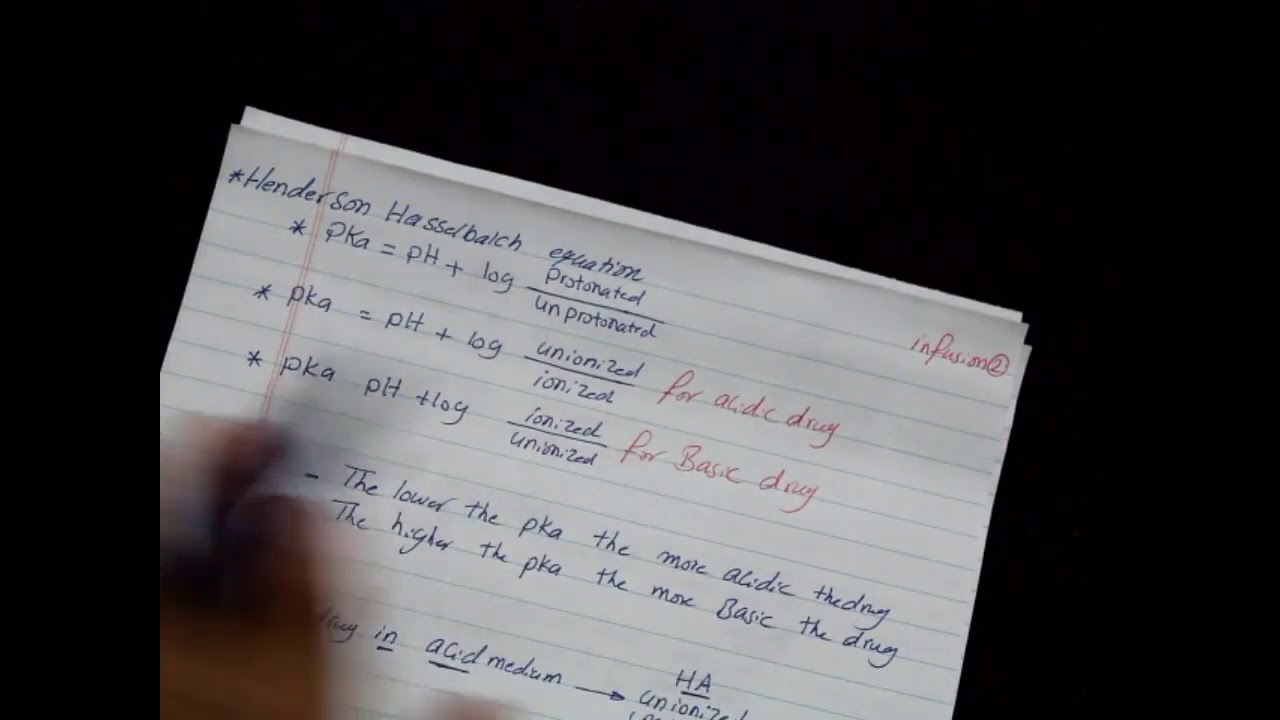 *Henderson Hasselbalch equation
* PKa = pH + log Protonated / unprotonated
infusion②
* pka = pH + log unionized / ionized for acidic drug
* pka pH + log ionized / unionized for Basic drug
- The lower the pka the more acidic the drug
The higher the pka the more Basic the drug
drug in acid medium → HA
unionized